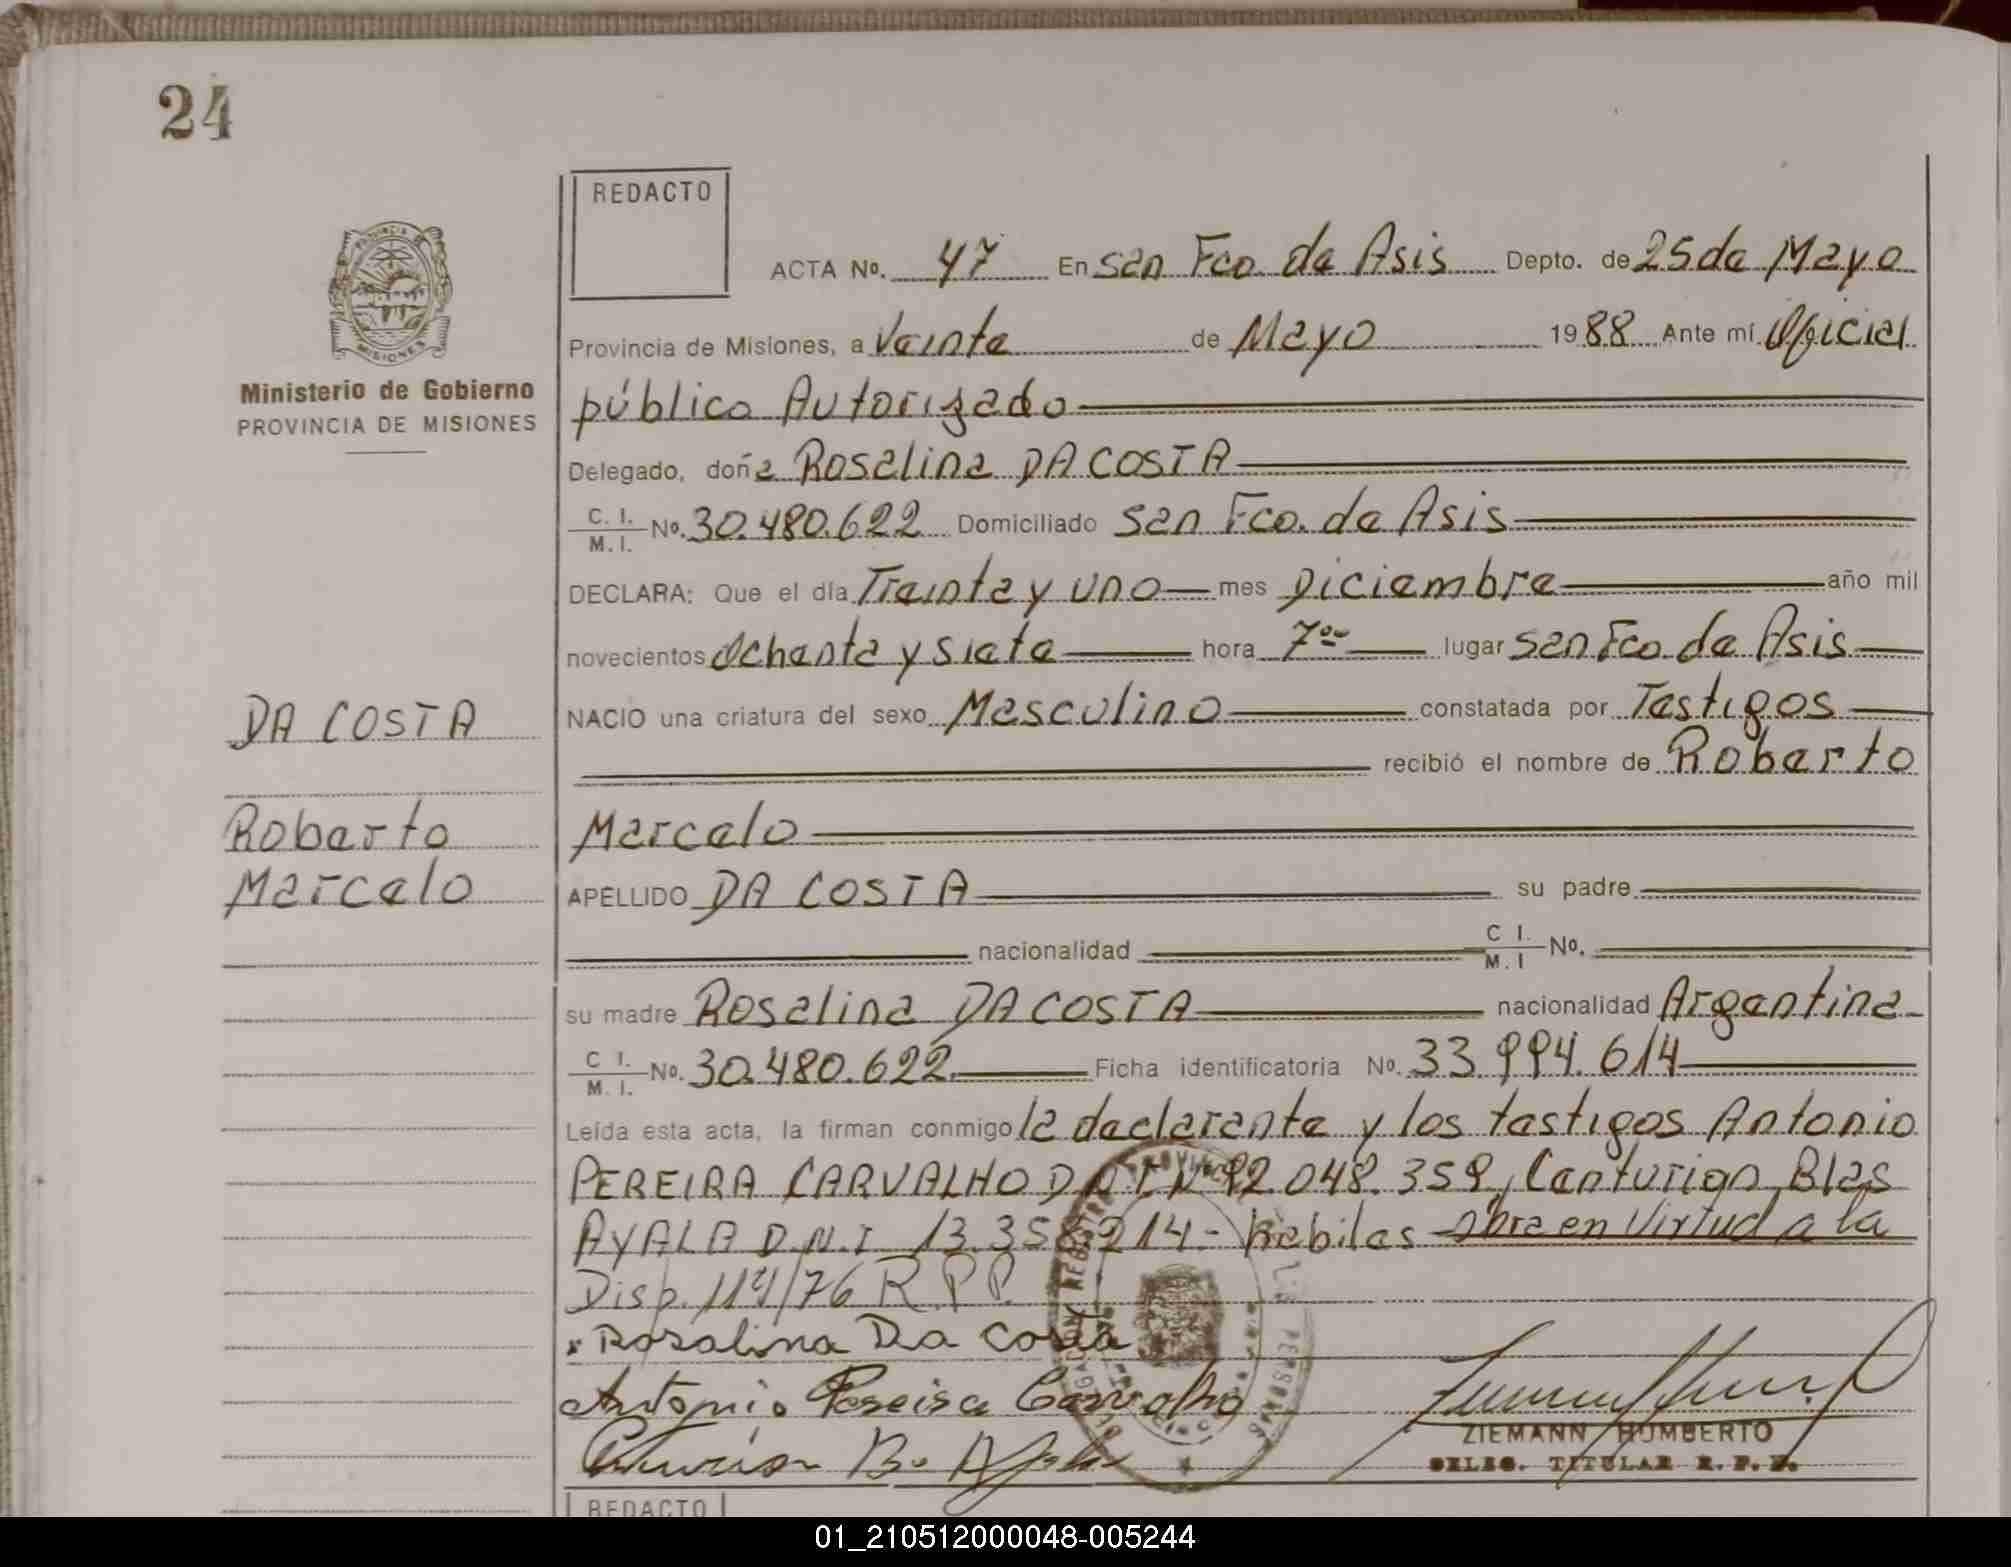 24
REDACTO
ACTA Nº. 47 En San Fco. de Asis Depto. de 25 de Mayo
Provincia de Misiones, a Veinte de Mayo 1988 Ante mí Oficial
público Autorizado
Delegado, doña Rosalina DA COSTA
C. I. / M. I. Nº. 30.480.622 Domiciliado San Fco. de Asis
DECLARA: Que el día Treinta y uno mes Diciembre año mil
novecientos Ochenta y Siete hora 7ºº lugar San Fco. de Asis
NACIO una criatura del sexo Masculino constatada por Testigos
recibió el nombre de Roberto
Marcelo
APELLIDO DA COSTA su padre
nacionalidad C I. / M. I Nº.
su madre Rosalina DA COSTA nacionalidad Argentina
C I. / M. I. Nº. 30.480.622 Ficha identificatoria Nº. 33.994.614
Leída esta acta, la firman conmigo la declarante y los testigos Antonio
PEREIRA CARVALHO D.N.I. Nº 92.048.359, Centurion Blas
AYALA D.N.I 13.358.214 - habiles obra en Virtud a la
Disp. 114/76 R.P.P.
Rosalina Da Costa
Antonio Pereira Carvalho
Centurión B. Ayala
ZIEMANN HUMBERTO
DELEG. TITULAR R. P. P.
PROVINCIA DE
MISIONES
Ministerio de Gobierno
PROVINCIA DE MISIONES
DA COSTA
Roberto
Marcelo
REDACTO
01_210512000048-005244